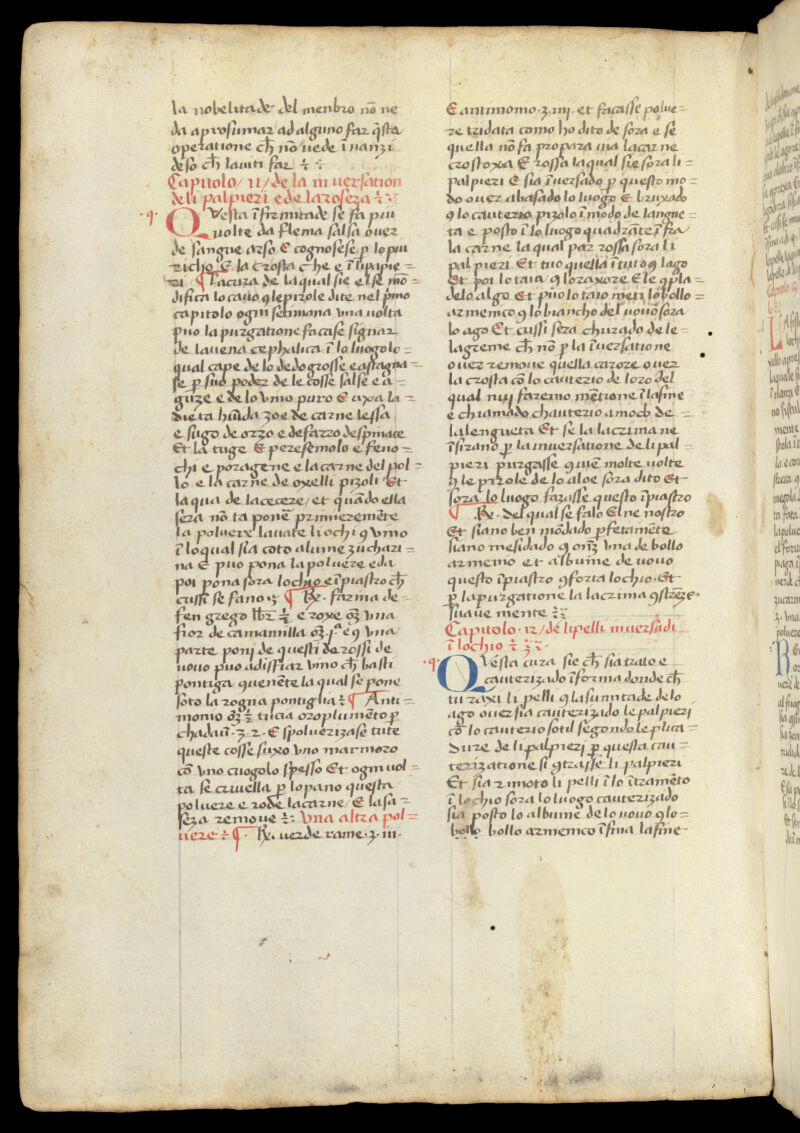 la nobelitade del menbro nō ne
da aprosumar ad alguno far q̄sta
operatione ch̄ nō uede īnanzi
de so ch̄ lauiti far
Capitolo / 11 / de la inuersation
de li palpieri e de la roseza
Questa īfirmitade se fa piu
uolte da flema salsa ouer
de sangue arso E cognosese p lo piu
richo E la crosta che e ī li papie
ri ¶ La cura de la qual sie el se mō
difica lo cauo
capitolo ogni setimana una uolta
puo la purgatione facase signar
de la uena cephalica ī lo luogo lo
qual cape de lo dedo grosse e astagna =
se p suo poder de le cosse salse e a =
guze e de lo uino puro E uxa la =
dieta humida zoe de carne lessa
e sugo de orzo e de farro de spinace
Et la tuge E peresemolo e feno =
chi e poragene e la carne del pol =
lo e la carne de oxelli pizoli Et
la qua de la cecere / et quādo ella
sera nō ta ponē primieremēte
la poluere lauate li ochi 9 uino
ī lo qual sia coto alume zucharī
na E puo pona la poluere e da
poi pona sora lochio e īpiastro ch̄
cussi se fano ¶ Rx. farina de =
fen grego e roxe unā
fior de camamilla
parte poni de questi de rossi de
uouo puo adisfiar uino ch̄ basti
pontiga la qual se pone
soto la rogna pontigha ¶ Anti
monio tucia oroplumēto p
chadaū . 3 . 2 . E spoluerizase tute
queste cosse suxo uno marmoro
cō uno cuogolo spesso Et ogni uol
ta se criuella p lo pano questa
poluere e rode la carne / E la sa =
seza remoue Una altra pol =
uere ¶ . Rx. uerde rame . 3 . iii .
E antimonio . 3 . iiii . et facasse polue =
re tridata como ho dito de sora e se
quella nō fa propara una la carne
crostoxa E rossa la qual sie sora li =
palpieri E sia īuersado p questo mo =
do ouer abasado lo luogo E bruxado
9 lo cauterio pizolo ī modo de langue =
ta e posto ī lo luogo quadrāte ī fra
la carne la qual par rossa sora li
palpieri Et tuo quella ī tuto 9 lago
Et poi lo taia 9 lo raxore
de lo algo Et puo lo taio meti lo bollo =
armenico 9 lo biancho del uouo sora
lo ago Et cussi sera churado de le =
lagreme ch̄ nō p la īuersatione
ouer remoue quella caroze ouer
la crosta cō lo cauterio de loro del
qual nuj faremo mētione ī la fine
e chiamado chauterio a modo de =
la lengueta Et se la lacrima ne
īfirano p la inuersatione de li pal =
pieri purgasse molte uolte
9 le pirole de lo aloe sora dito Et
sora lo luogo fazasse questo īpiastro
¶ Rx. del qual se fa lo elne nostro
Et siano ben mōdado pfetamēte
siano mesidado 9 una de bollo
armenio et albume de uouo
questo īpiastro 9forta lochio . Et
p la purgatione la lacrima 9streze =
suaue mente
Capitolo . 12 / de li pelli inuersadi
ī lochio
Questa cura sie ch̄ sia trato e
cauterizado ī forma donde ch̄
tu raxi li pelli 9 la sumitade de lo
ago ouer sia cauterizado le palpieri
cō lo cauterio sotil segondo le plica =
dure de li palpieri p questa cau =
terizatione si 9trasse li palpieri
Et sia rimoto li pelli ī lo ītramēto
ī lochio sora lo luogo cauterizado
sia posto lo albume de lo uouo 9 lo =
bollo bollo armenico īsina la fine